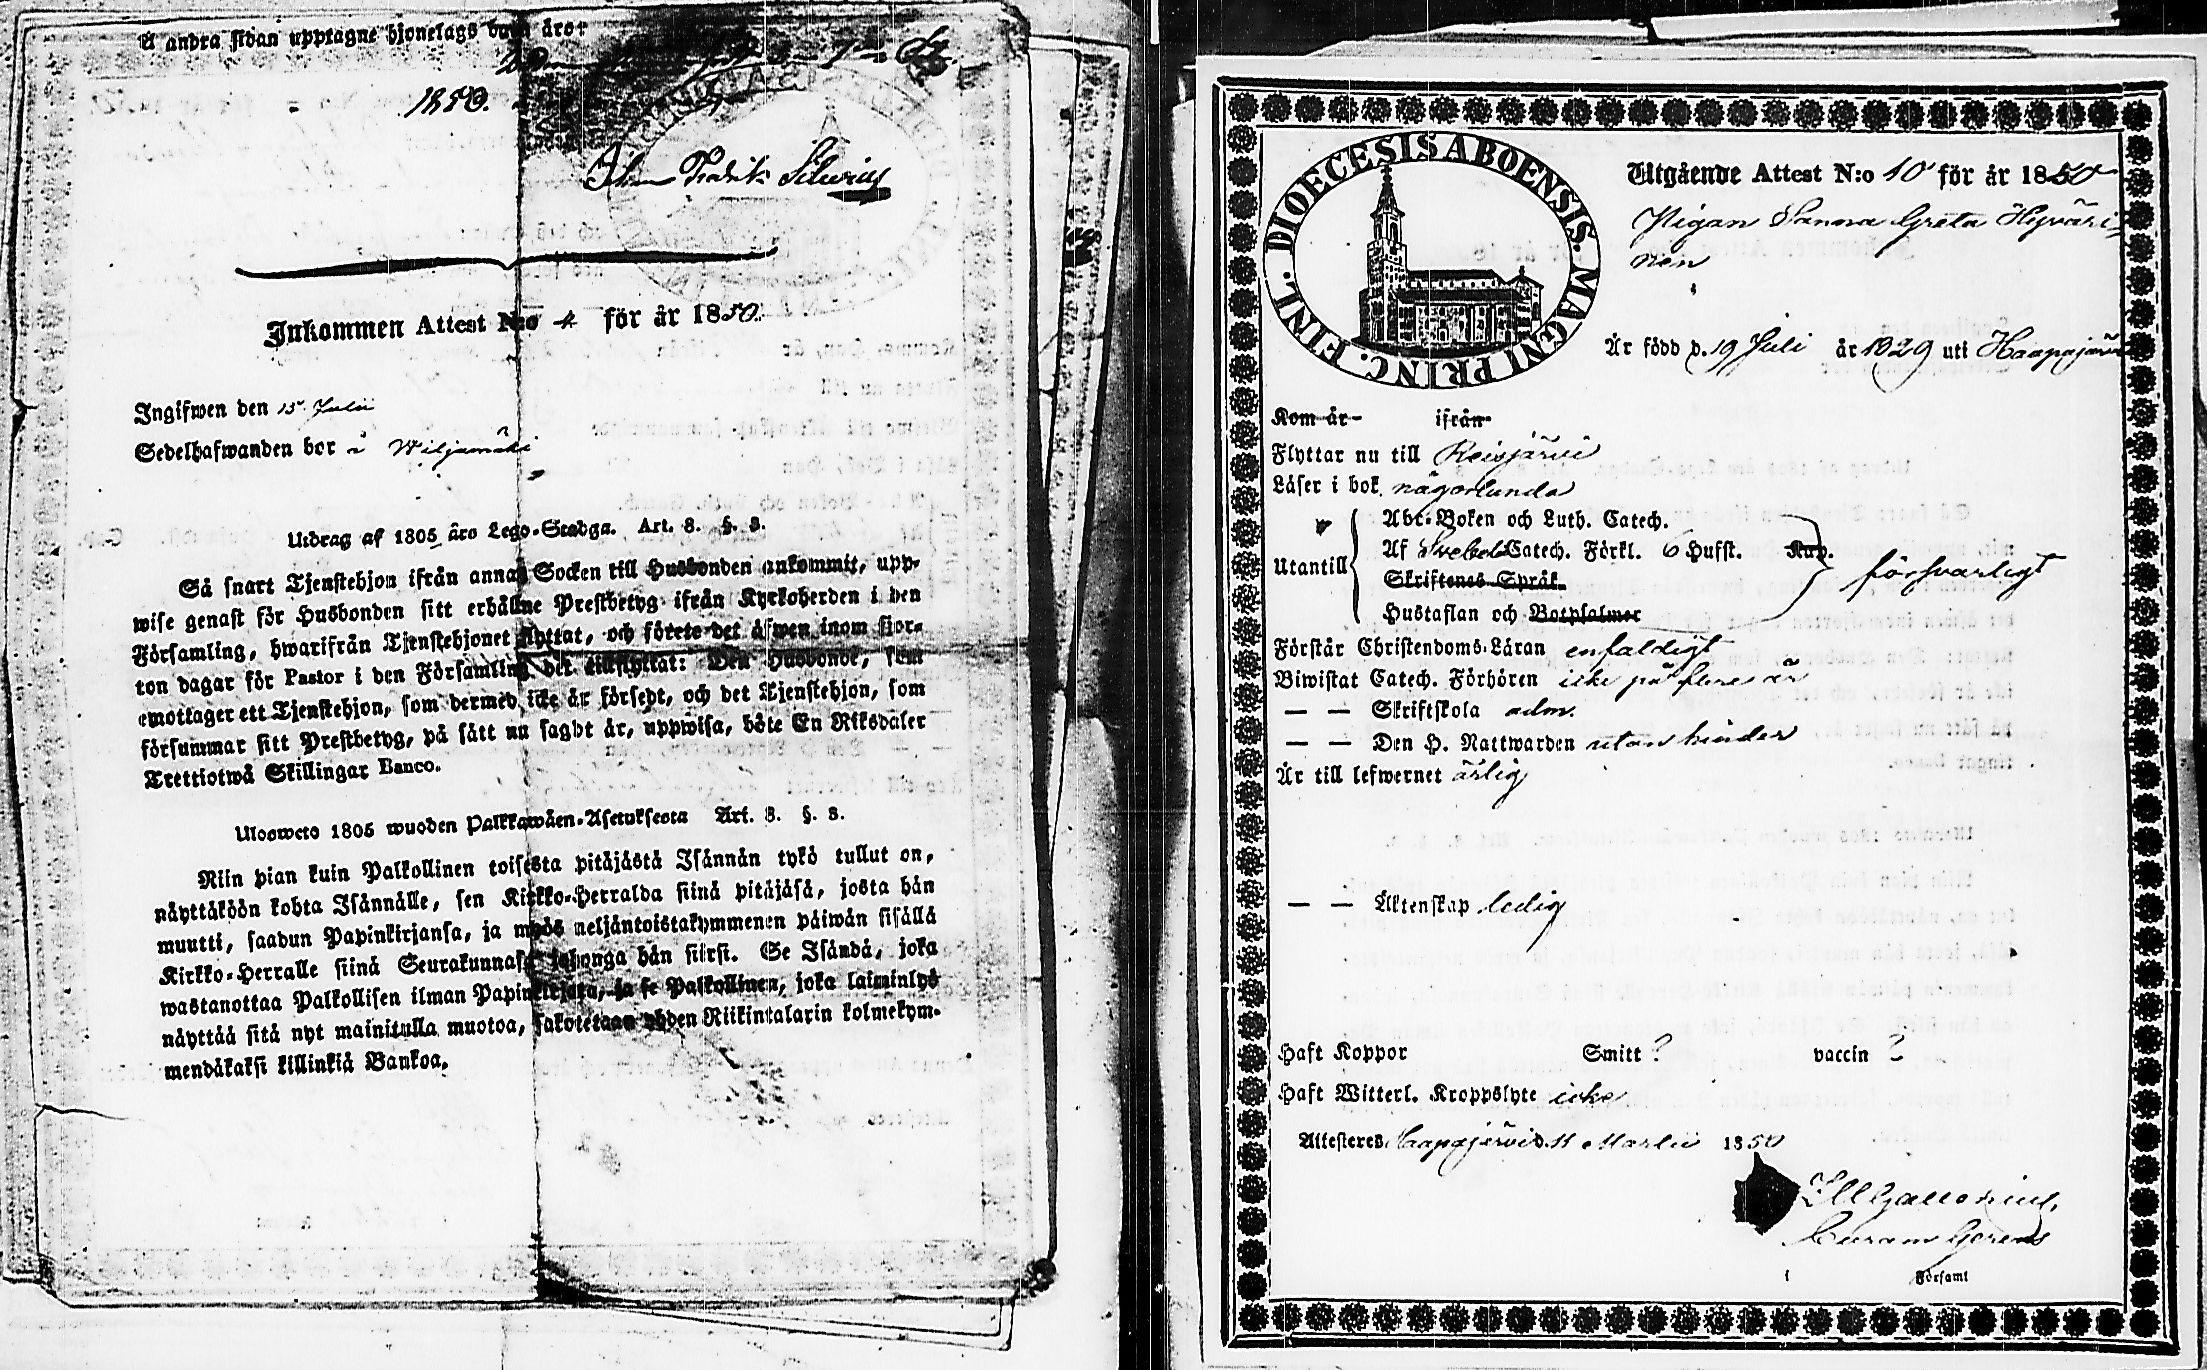 å andra sidan upptagne hjonelags barn äro:
1850.
Inkommen Attest N:o 4 för år 1850.
Ingifwen den 15 Julii
Sedelhafwanden bor å Wiljamäki
Utdrag af 1805 års Lego-Stadga. Art. 8. §. 3.
Så snart Tjenstehjon ifrån annan Socken till Husbonden ankommit, upp-
wise genast för Husbonden sitt erhållne Prestbetyg ifrån Kyrkoherden i den
Församling, hwarifrån Tjenstehjonet flyttat, och förete det äfwen inom fjor-
ton dagar för Pastor i den Församling det tillflyttat: Den Husbonde, som
emottager ett Tjenstehjon, som dermed icke är försedt, och det Tjenstehjon, som
försummar sitt Prestbetyg, på sätt nu sagdt är, uppwisa, böte En Riksdaler
Trettiotwå Skillingar Banco.
Ulosweto 1805 wuoden Palkkawäen-Asetuksesta Art. 8. §. 3.
Niin pian kuin Palkollinen toisesta pitäjästä Isännän tykö tullut on,
näyttäköön kohta Isännälle, sen Kirkko-Herralda siinä pitäjäsä, josta hän
muutti, saadun Papinkirjansa, ja myös neljäntoistakymmenen päiwän sisällä
Kirkko-Herralle siinä Seurakunnasa johonga hän siirsi. Se Isändä, joka
wastanottaa Palkollisen ilman Papinkirjata, ja se Palkollinen, joka laiminlyö
näyttää sitä nyt mainitulla muotoa, sakotetaan yhden Riikintalarin kolmekym-
mendäkaksi killinkiä Bankoa.
DIOECESIS ABOENSIS. MAGNI PRINC. FINL.
Utgående Attest N:o 10 för år 1850
Pigan Sanna Greta Hyväri-
nen
Är född d. 19 Juli år 1829 uti Haapajärvi
Kom år ifrån
Flyttar nu till Reisjärvi
Läser i bok någorlunda
Utantill
Abc-Boken och Luth. Catech.
Af Svebel. Catech. Förkl. 6 Hufst. Kap.
Skriftenes Språk.
Hustaflan och Botpsalmer
försvarligt
Förstår Christendoms-Läran enfaldigt
Biwistat Catech. Förhören icke på flere år
— — Skriftskola adm.
— — Den H. Nattwarden utan hinder
Är till lefwernet ärlig
— — Äktenskap ledig
Haft Koppor Smitt ? vaccin ?
Haft Witterl. Kroppslyte icke
Attesteres Haapajärvi d. 11 Martii 1850
Curam Gerens
i Församl